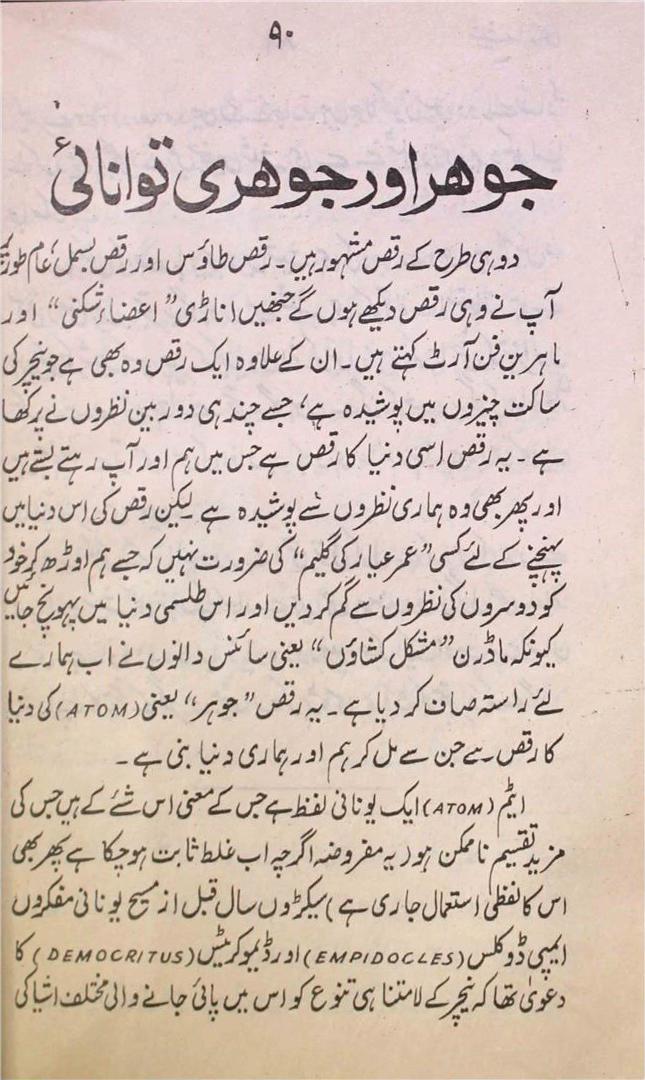 ۹۰
جوھر اور جوھری توانائی
دو ہی طرح کے رقص مشہور ہیں۔ رقص طاؤس اور رقص بسمل، عام طور پر
آپ نے وہی رقص دیکھے ہوں گے جنھیں اناڑی ”اعضاء شکنی“ اور
ماہرینِ فن آرٹ کہتے ہیں۔ ان کے علاوہ ایک رقص وہ بھی ہے جو نیچر کی
ساکت چیزوں میں پوشیدہ ہے، جسے چند ہی دوربین نظروں نے پرکھا
ہے۔ یہ رقص اسی دنیا کا رقص ہے جس میں ہم اور آپ رہتے بستے ہیں
اور پھر بھی وہ ہماری نظروں سے پوشیدہ ہے۔ لیکن رقص کی اس دنیا میں
پہنچنے کے لئے کسی ”عمر عیار کی گلیم“ کی ضرورت نہیں کہ جسے ہم اوڑھ کر خود
کو دوسروں کی نظروں سے گم کر دیں اور اس طلسمی دنیا میں پہونچ جائیں
کیونکہ ماڈرن ”مشکل کشاؤں“ یعنی سائنس دانوں نے اب ہمارے
لئے راستہ صاف کر دیا ہے۔ یہ رقص ”جوہر“ یعنی (ATOM) کی دنیا
کا رقص ہے جن سے مل کر ہم اور ہماری دنیا بنی ہے۔
ایٹم (ATOM) ایک یونانی لفظ ہے جس کے معنی اس شئے کے ہیں جس کی
مزید تقسیم ناممکن ہو (یہ مفروضہ اگرچہ اب غلط ثابت ہو چکا ہے پھر بھی
اس کا لفظی استعمال جاری ہے) سیکڑوں سال قبل از مسیح یونانی مفکروں
ایمپی ڈوکلس (EMPIDOCLES) اور ڈیموکریٹس (DEMOCRITUS) کا
دعویٰ تھا کہ نیچر کے لامتناہی تنوع کو اس میں پائی جانے والی مختلف اشیا کی